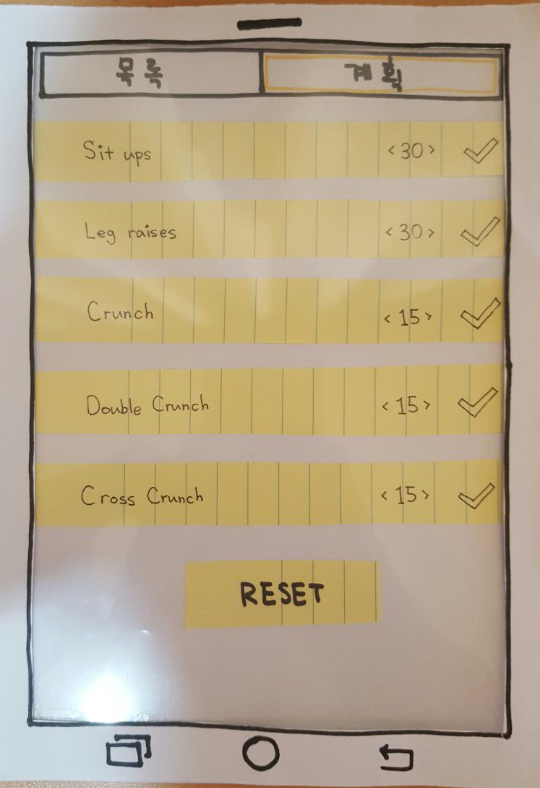 목록 계획
Sit ups <30>
Leg raises <30>
Crunch <15>
Double Crunch <15>
Cross Crunch <15>
RESET